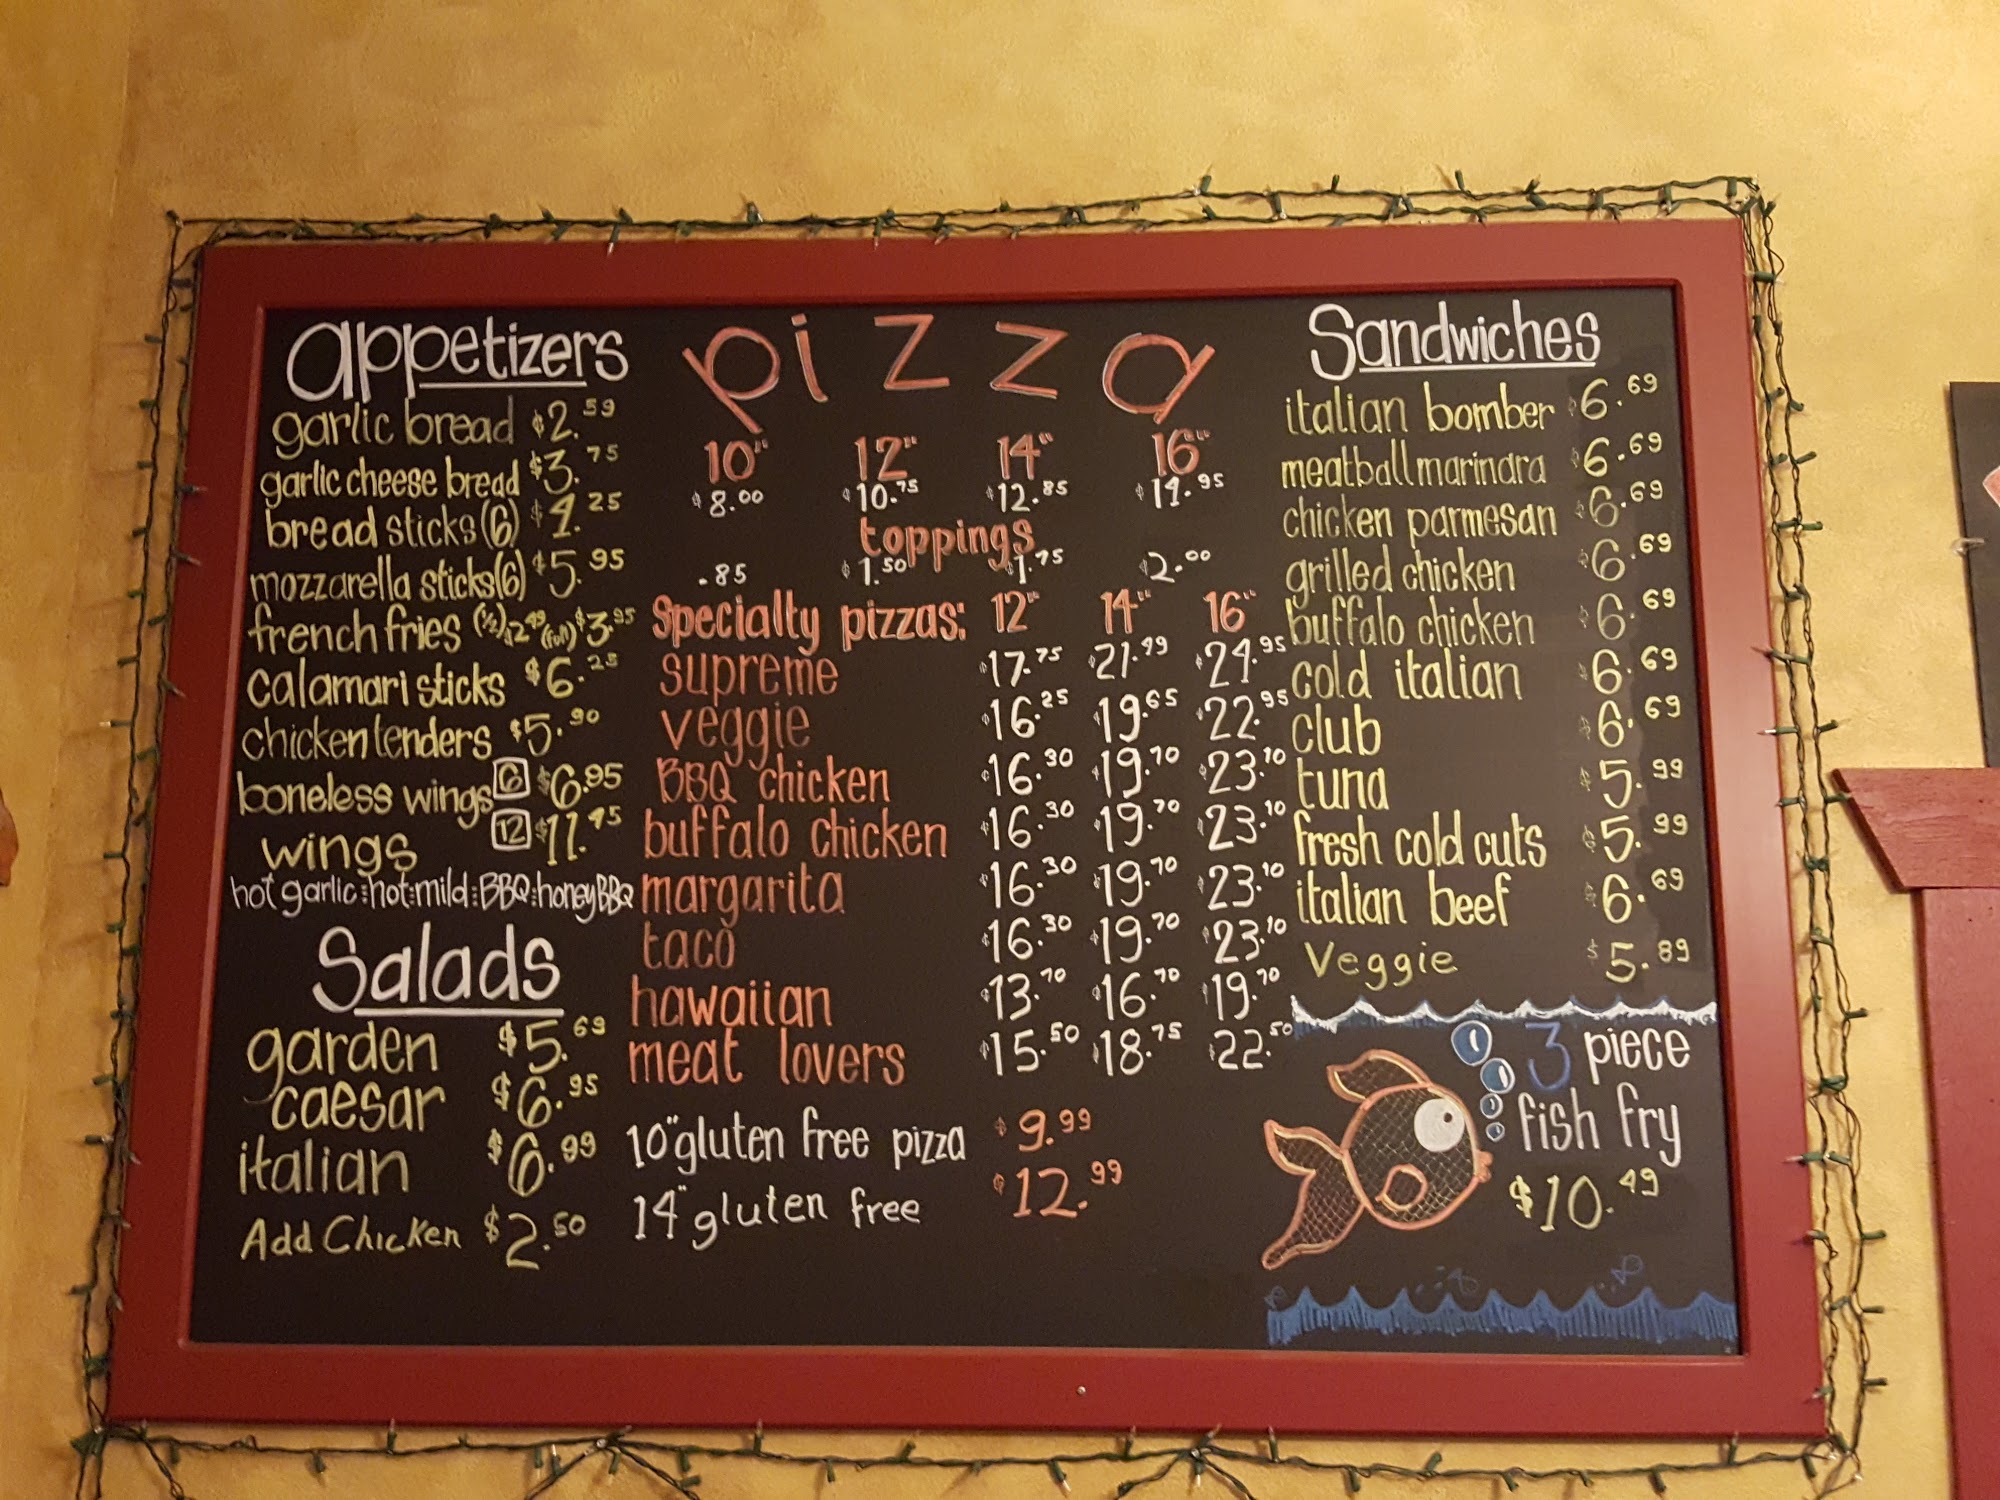 appetizers
garlic bread $2.59
garlic cheese bread $3.75
bread sticks (6) $4.25
mozzarella sticks (6) $5.95
french fries (1/2) $2.49 (full) $3.95
calamari sticks $6.25
chicken tenders $5.90
boneless wings 6 $6.95
wings 12 $11.45
hot garlic : hot : mild : BBQ : honey BBQ
Salads
garden $5.69
caesar $6.95
italian $6.99
Add Chicken $2.50
pizza
10" 12" 14" 16"
$8.00 $10.75 $12.85 $14.95
toppings
.85 $1.50 $1.75 $2.00
Specialty pizzas: 12" 14" 16"
supreme $17.75 $21.99 $24.95
veggie $16.25 $19.65 $22.95
BBQ chicken $16.30 $19.70 $23.10
buffalo chicken $16.30 $19.70 $23.10
margarita $16.30 $19.70 $23.10
taco $16.30 $19.70 $23.10
hawaiian $13.70 $16.70 $19.70
meat lovers $15.50 $18.75 $22.50
10" gluten free pizza $9.99
14" gluten free $12.99
Sandwiches
italian bomber $6.69
meatball marinara $6.69
chicken parmesan $6.69
grilled chicken $6.69
buffalo chicken $6.69
cold italian $6.69
club $6.69
tuna $5.99
fresh cold cuts $5.99
italian beef $6.69
Veggie $5.89
3 piece
fish fry
$10.49